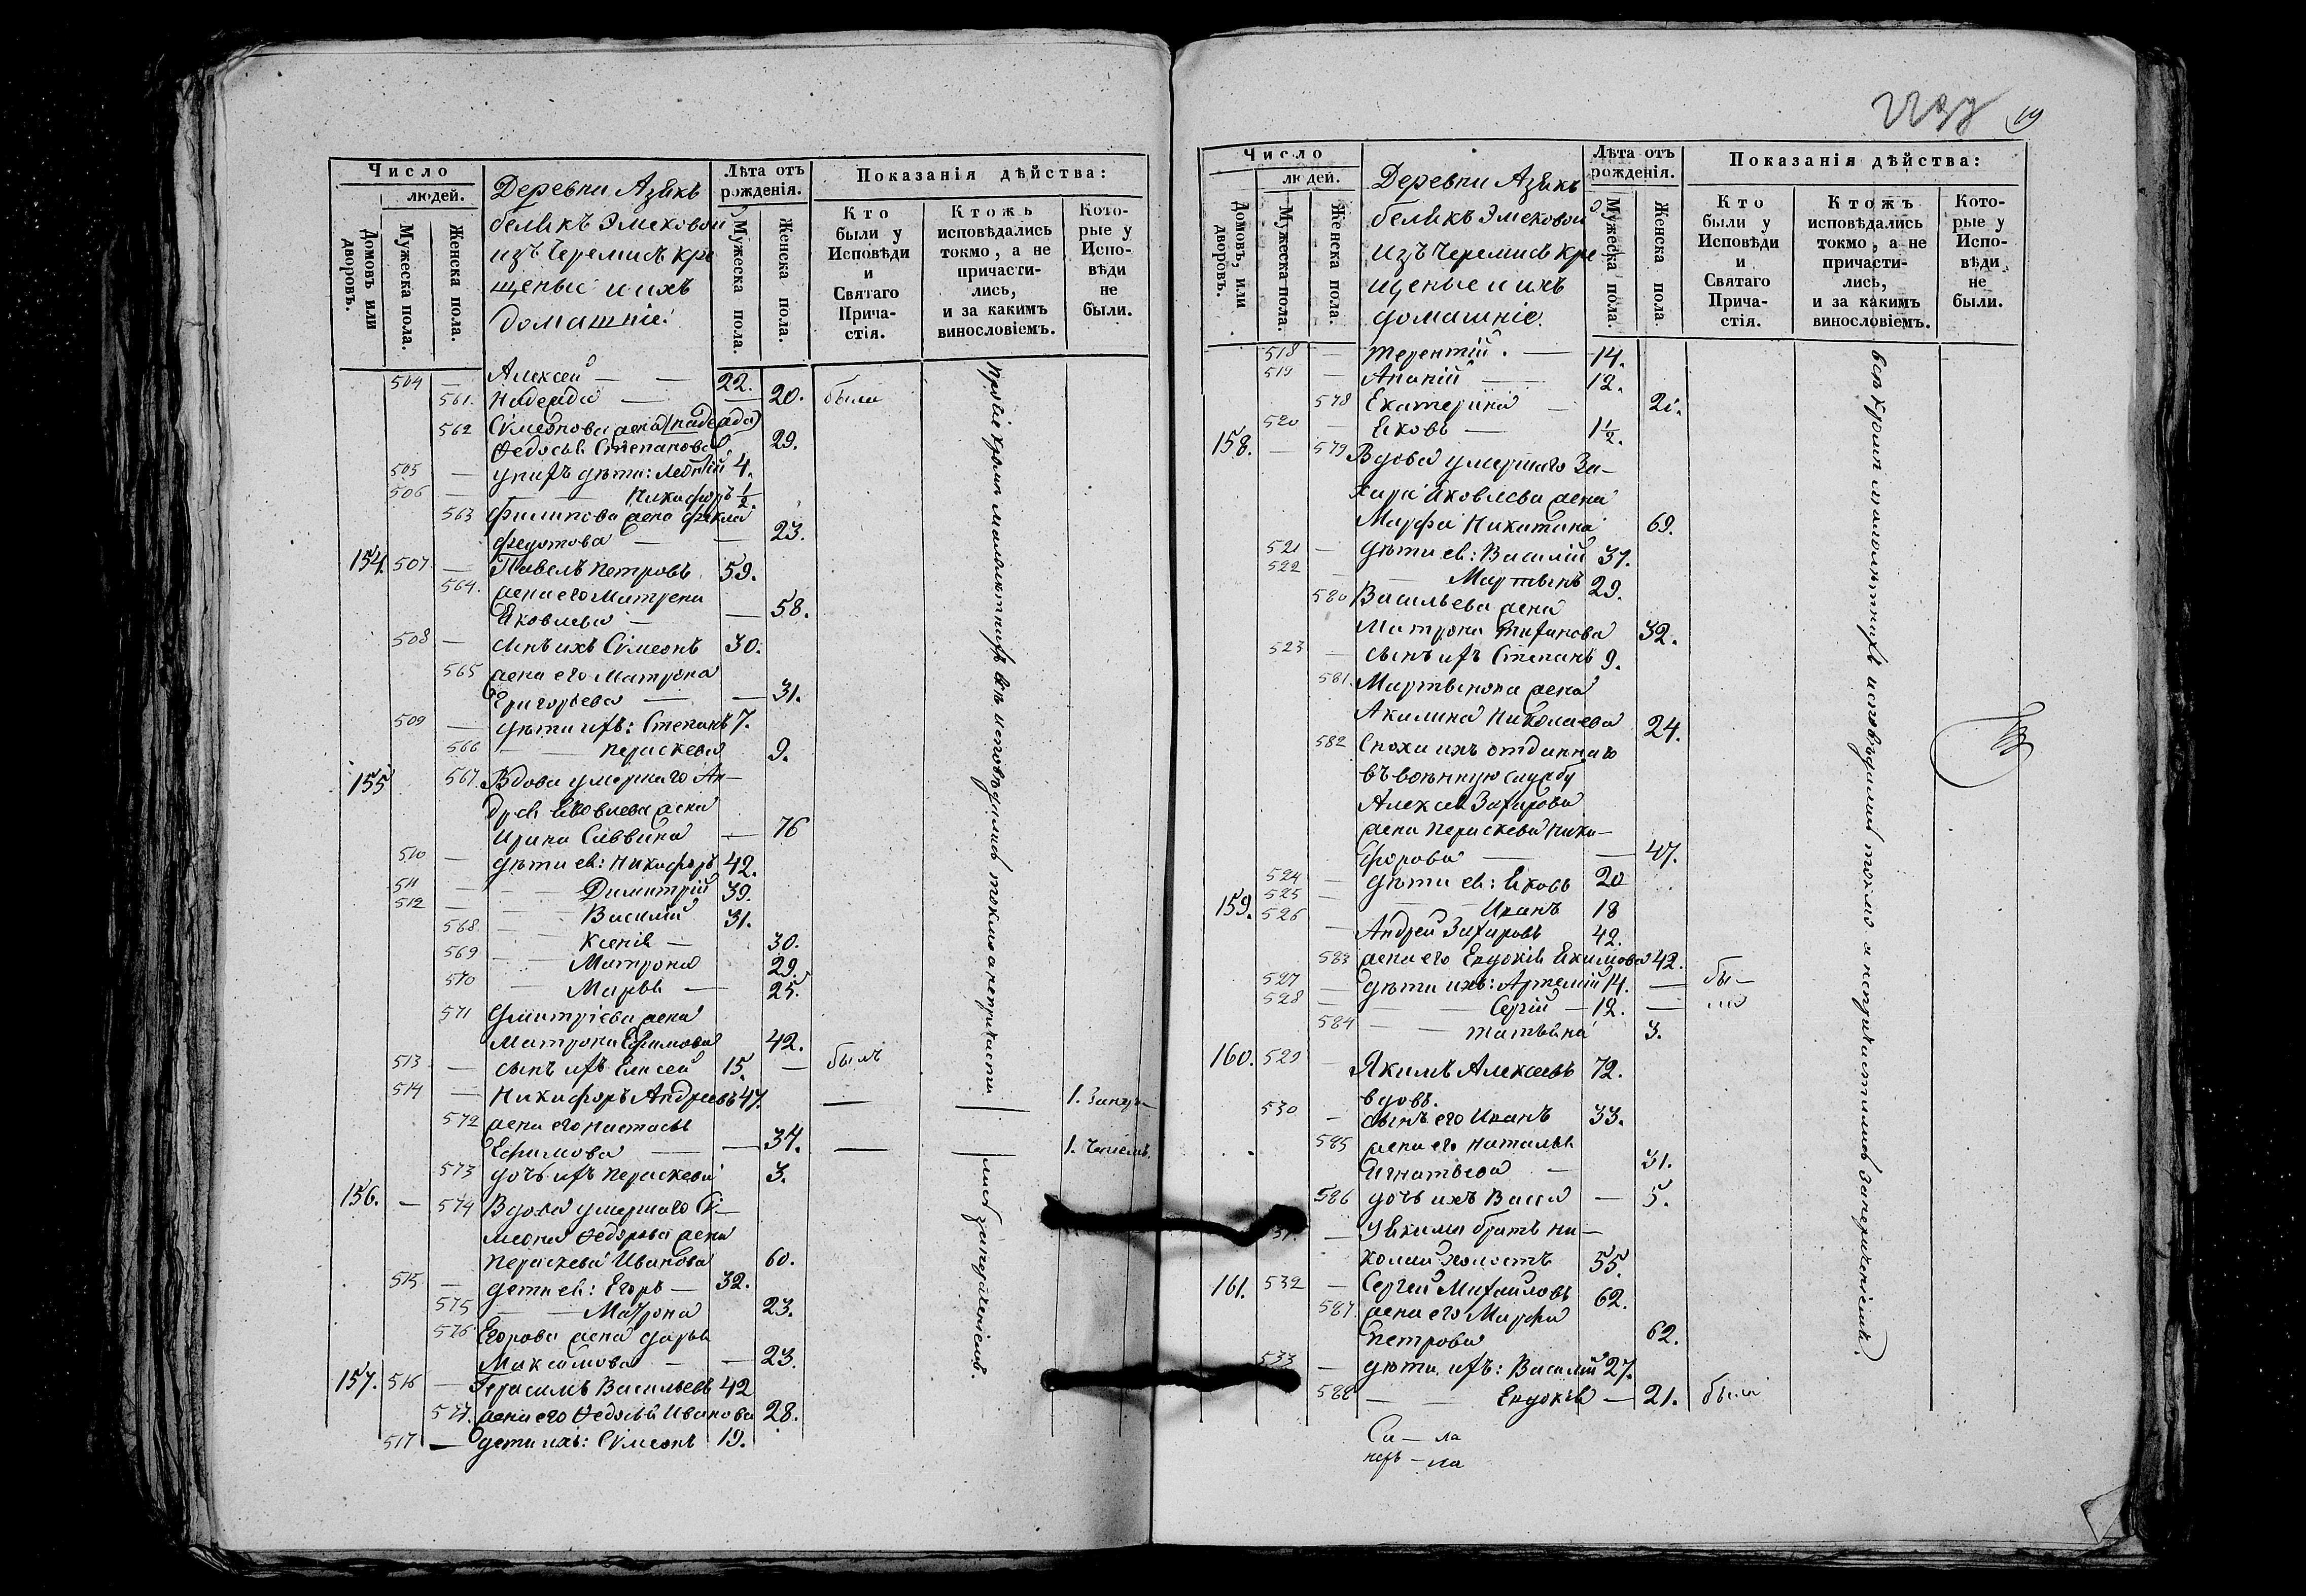 Число
людей.
Домовъ или дворовъ.
Мужеска пола.
Женска пола.
Деревни Азякъ
беликъ Элековой
изъ Черемисъ кре
щеные и ихъ
домашніе:
Лѣта отъ рожденія.
Мужеска пола.
Женска пола.
Показанія дѣйства:
Кто были у Исповѣди и Святаго Прича-стія.
Ктожъ исповѣдались токмо, а не причасти-лись, и за какимъ винословіемъ.
Кото-рые у Испо-вѣди не были.
504 — Алексей — — 22.
561. Надежда — — 20. были
562 Сѵмеонова жена (надежда)
Федосья Степанова 29.
505 — у нихъ дѣти: Леонтій 4.
506 — Никифоръ ½.
563 Филипова жена Фекла
Федотова — — 23.
154. 507 — Павелъ Петровъ 59.
564. жена его Матрена
Яковлева — — 58.
508 — сынъ ихъ Сѵмеонъ 30.
565 жена его Матрона
Григорьева — — 31.
509 — дѣти ихъ: Степанъ 7.
566 — Параскева 9.
155 567. Вдова умершаго Ан—
дрея Яковлева жена
Ирина Саввина — 76
510 — дѣти ея: Никифоръ 42.
511 — — Димитрій 39.
512 — — Василій 31.
568 — Ксенія — 30.
569 — Матрона 29.
570 — Марья — 25.
571 Дмитріева жена
Матрона Ефимова 42.
513 — сынъ ихъ Елисей 15. — былъ
514 — Никифоръ Андреевъ 47. — 1. Заотлу—
572 жена его Настасья
Ефимова — — 34. — 1. ченіемъ.
573 дочь ихъ Параскева 3.
156. — 574 Вдова умершаго Сѵ—
меона Федорова жена
Параскева Иванова 60.
515 — дети ея: Егоръ — 32.
575 — — Матрона 23.
576 Егорова жена Дарья
Максимова — — 23.
157. 516 — Герасимъ Васильевъ 42
577. жена его Федосья Иванова 28.
517 — дети ихъ: Сѵмеонъ 19.
Прочіе кромѣ малолѣтнихъ всѣ исповѣдались токмо а непричасти
лись
19
Число
людей.
Домовъ, или дворовъ.
Мужеска пола.
Женска пола.
Деревни Азякъ
беликъ Элековой
изъ Черемисъ кре—
щеные и ихъ
домашніе.
Лѣта отъ рожденія.
Мужеска пола.
Женска пола.
Показанія дѣйства:
Кто были у Исповѣди и Святаго Прича-стія.
Ктожъ исповѣдались токмо, а не причасти-лись, и за какимъ винословіемъ.
Кото-рые у Испо-вѣди не были.
518 — Терентій. — 14.
519 — Ананій — 12.
578 Екатерина — 21.
520 — Яковъ — 1½.
158. — 579 Вдова умершаго За—
хара Яковлева жена
Марфа Никитина 69.
521 — дѣти ея: Василій 37.
522 — — Мартынъ 29.
580 Васильева жена
Матрона 32.
523 — сынъ ихъ Степанъ 9.
581. Мартынова жена
Акилина Николаева 24.
582 Сноха ихъ отданнаго
въ военную службу
Алексея Захарова
жена Параскева Ники—
форова — — 47.
524 — дѣти ея: Яковъ 20
525 — — Иванъ 18
159. 526 — Андрей Захаровъ 42.
583 жена его Евдокія Якимова 42.
527 — дѣти ихъ: Артемій 14. — бы—
528 — — Сергій — 12. — ли
584 — — Татьяна 3.
160. 529 — Якимъ Алексеевъ 72.
вдовъ.
530 — сынъ его Иванъ 33.
585 жена его Наталья
Игнатьева — 31.
586 дочь ихъ Васса — 5.
531 — Уякима братъ Ни—
колай холостъ 55.
161. 532 — Сергей Михайловъ 62.
587. жена его Марфа
Петрова 62.
533 — дѣти ихъ: Василій 27.
588 — — Евдокія — 21. была
всѣ кромѣ малолѣтнихъ исповѣдались токмо а непричастились